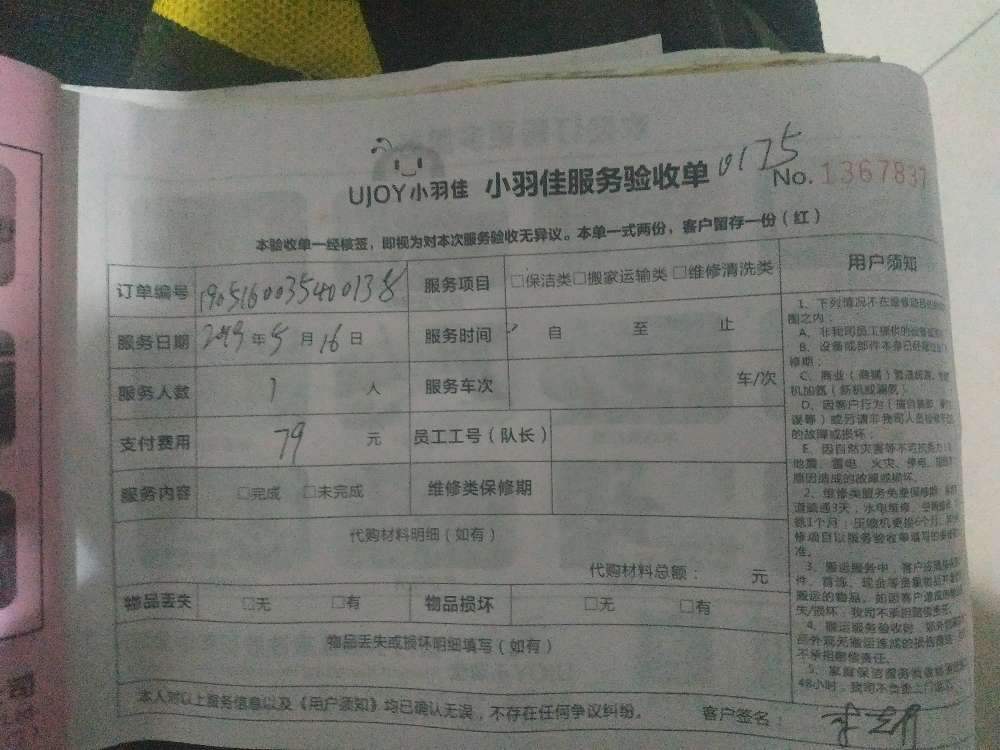 UJOY小羽佳 小羽佳服务验收单 0175
No. 1367837
本验收单一经核签，即视为对本次服务验收无异议。本单一式两份，客户留存一份（红）
订单编号 1905160035400138 服务项目 □保洁类□搬家运输类□维修清洗类
服务日期 2019年5月16日 服务时间 自 至 止
服务人数 1 人 服务车次 车/次
支付费用 79 元 员工工号（队长）
服务内容 □完成 □未完成 维修类保修期
代购材料明细（如有）
代购材料总额： 元
物品丢失 □无 □有 物品损坏 □无 □有
物品丢失或损坏明细填写（如有）
本人对以上服务信息以及《用户须知》均已确认无误，不存在任何争议纠纷。 客户签名：
用户须知
1、下列情况不在维修
围之内：
A、非我司员工
B、设备或部件本身已
修期；
C、商业（商铺）
机加氨（新机或漏氨）
D、因客户行为（擅自
误等）或另请非我司人员
的故障或损坏；
E、因自然灾害等不可抗
地震、雷电、火灾、停电、
原因造成的故障或损坏。
2、维修类服务免费保修期：
道疏通3天；水电维修、
器1个月；压缩机更换6个月
修项目以服务验收单填写的
准。
3、搬运服务中，客户应
件、首饰、现金等贵重物品
搬运的物品，如因客户
失/损坏，我司不承担赔偿责任。
4、搬运服务验收时，
品外观无搬运造成的损伤
不承担赔偿责任。
5、家庭保洁服务
48小时，我司不负责上门